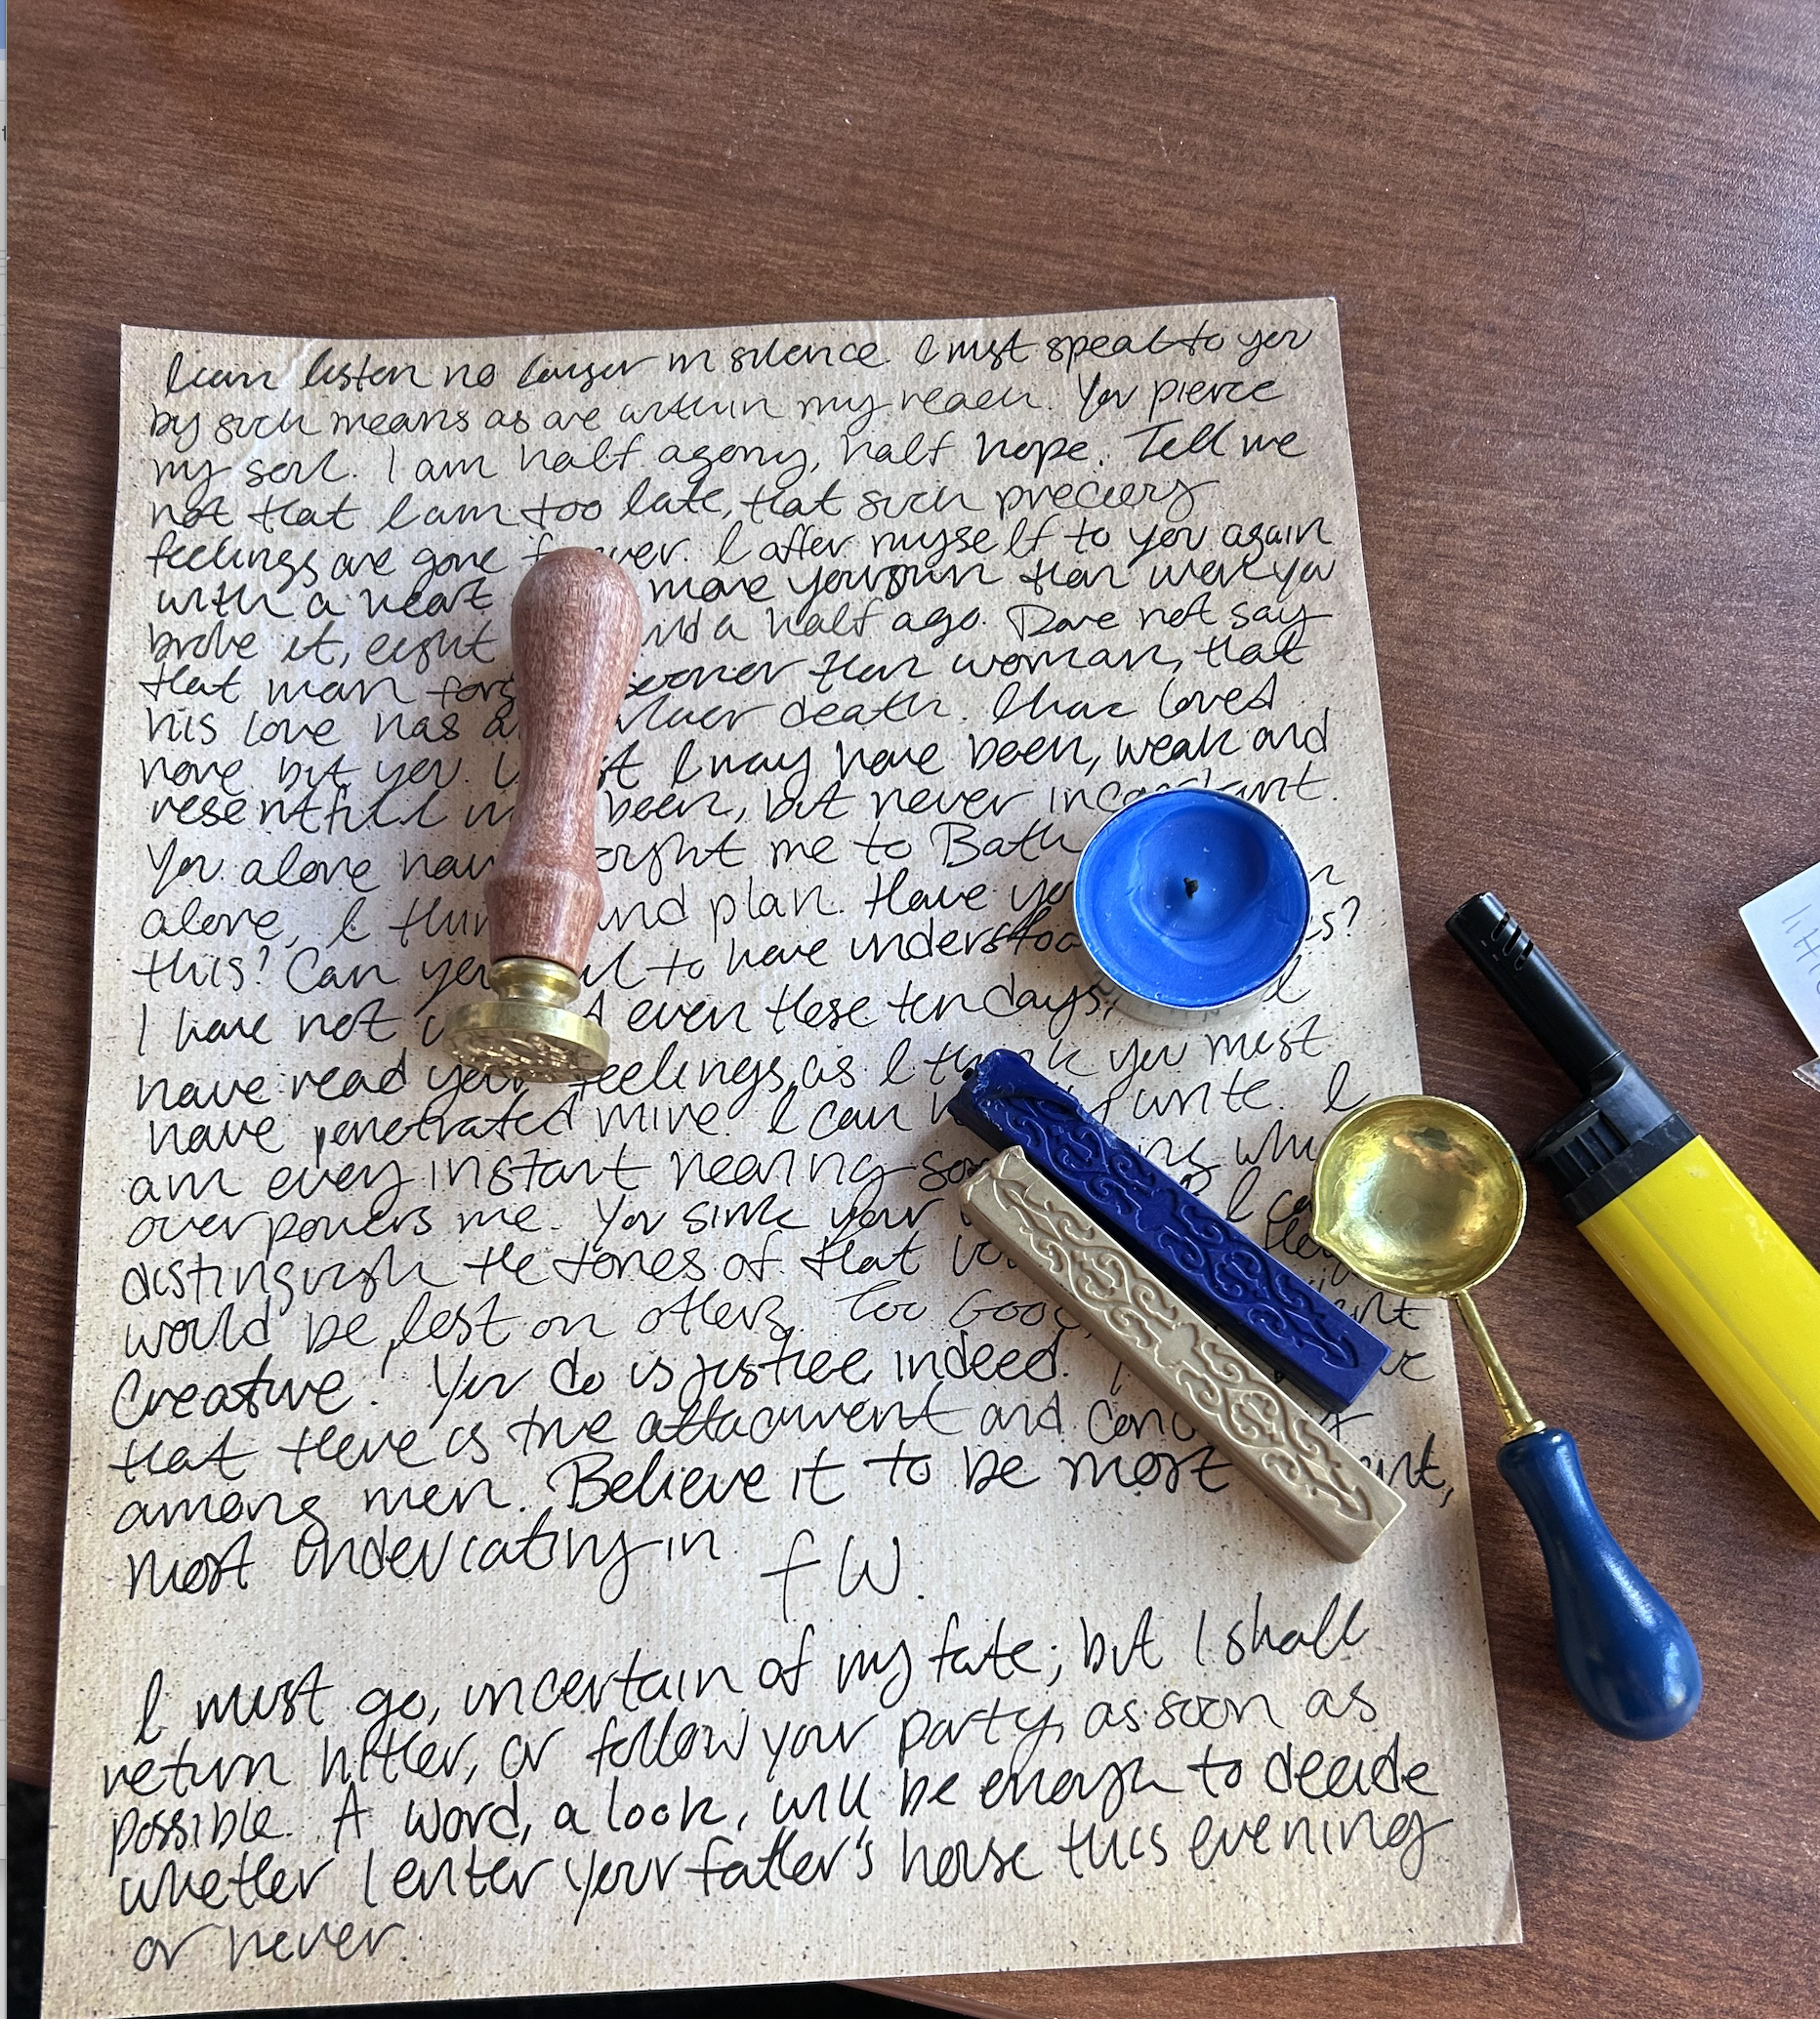 I can listen no longer in silence. I must speak to you
by such means as are within my reach. You pierce
my soul. I am half agony, half hope. Tell me
not that I am too late, that such precious
feelings are gone ever. I offer myself to you again
with a heart more your own than when you
broke it, eight and a half ago. Dare not say
that man sooner than woman, that
his love has death. I have loved
none but you. I may have been, weak and
resentful been, but never inconstant.
You alone me to Bath
alone, I and plan. Have
this? Can you to have
I have not even these ten days,
have read your feelings, as I think you must
have penetrated mine. I can write. I
am every instant hearing
overpowers me. You sink your I
distinguish the tones of that
would be lost on others. Too Good,
Creature! You do us justice, indeed.
that there is true attachment and
among men. Believe it to be most
most undeviating in
f W.
I must go, uncertain of my fate; but I shall
return hither, or follow your party, as soon as
possible. A word, a look, will be enough to decide
whether I enter your father's house this evening
or never.